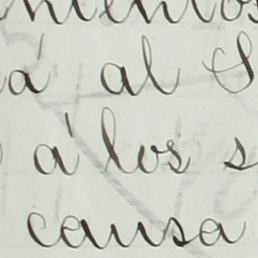 mentos
a al S
á los s
causa